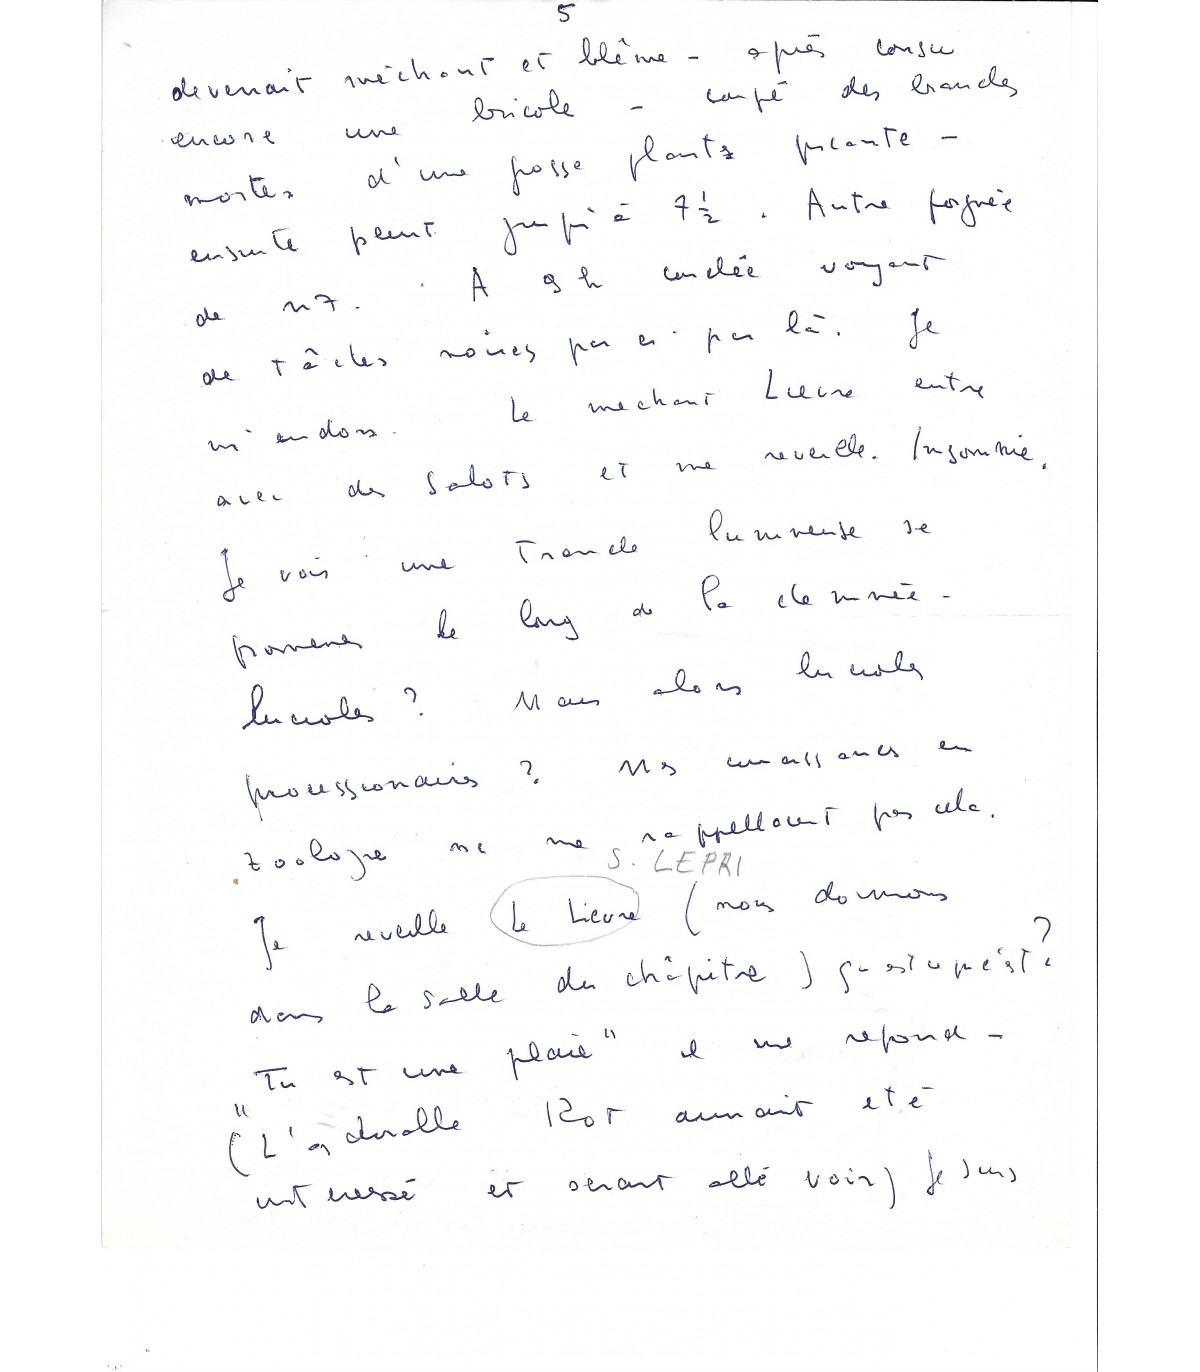 5
devenait méchant et blême - après cousu
encore une bricole - coupé des branches
mortes d'une grosse plante picante -
ensuite peint jusqu'à 7 ½. Autre poignée
de nz. A 9 h couchée voyant
de tâches noires par ci par là. Je
m'endors. Le mechant Lievre entre
avec des sabots et me reveille. Insomnie.
Je vois une Tranche lumineuse se
promener le long de la cheminée -
lucioles? Mais alors lucioles
processionaires? Mes connaissances en
zoologie ne me rappellaient pas cela.
S. LEPRI
Je reveille le Lievre (nous dormons
dans la salle du châpitre) qu'est ce que c'est?
"Tu est une plaie" il me repond -
(L'adorable Kot aurait eté
interessé et serait allé voir) Je suis